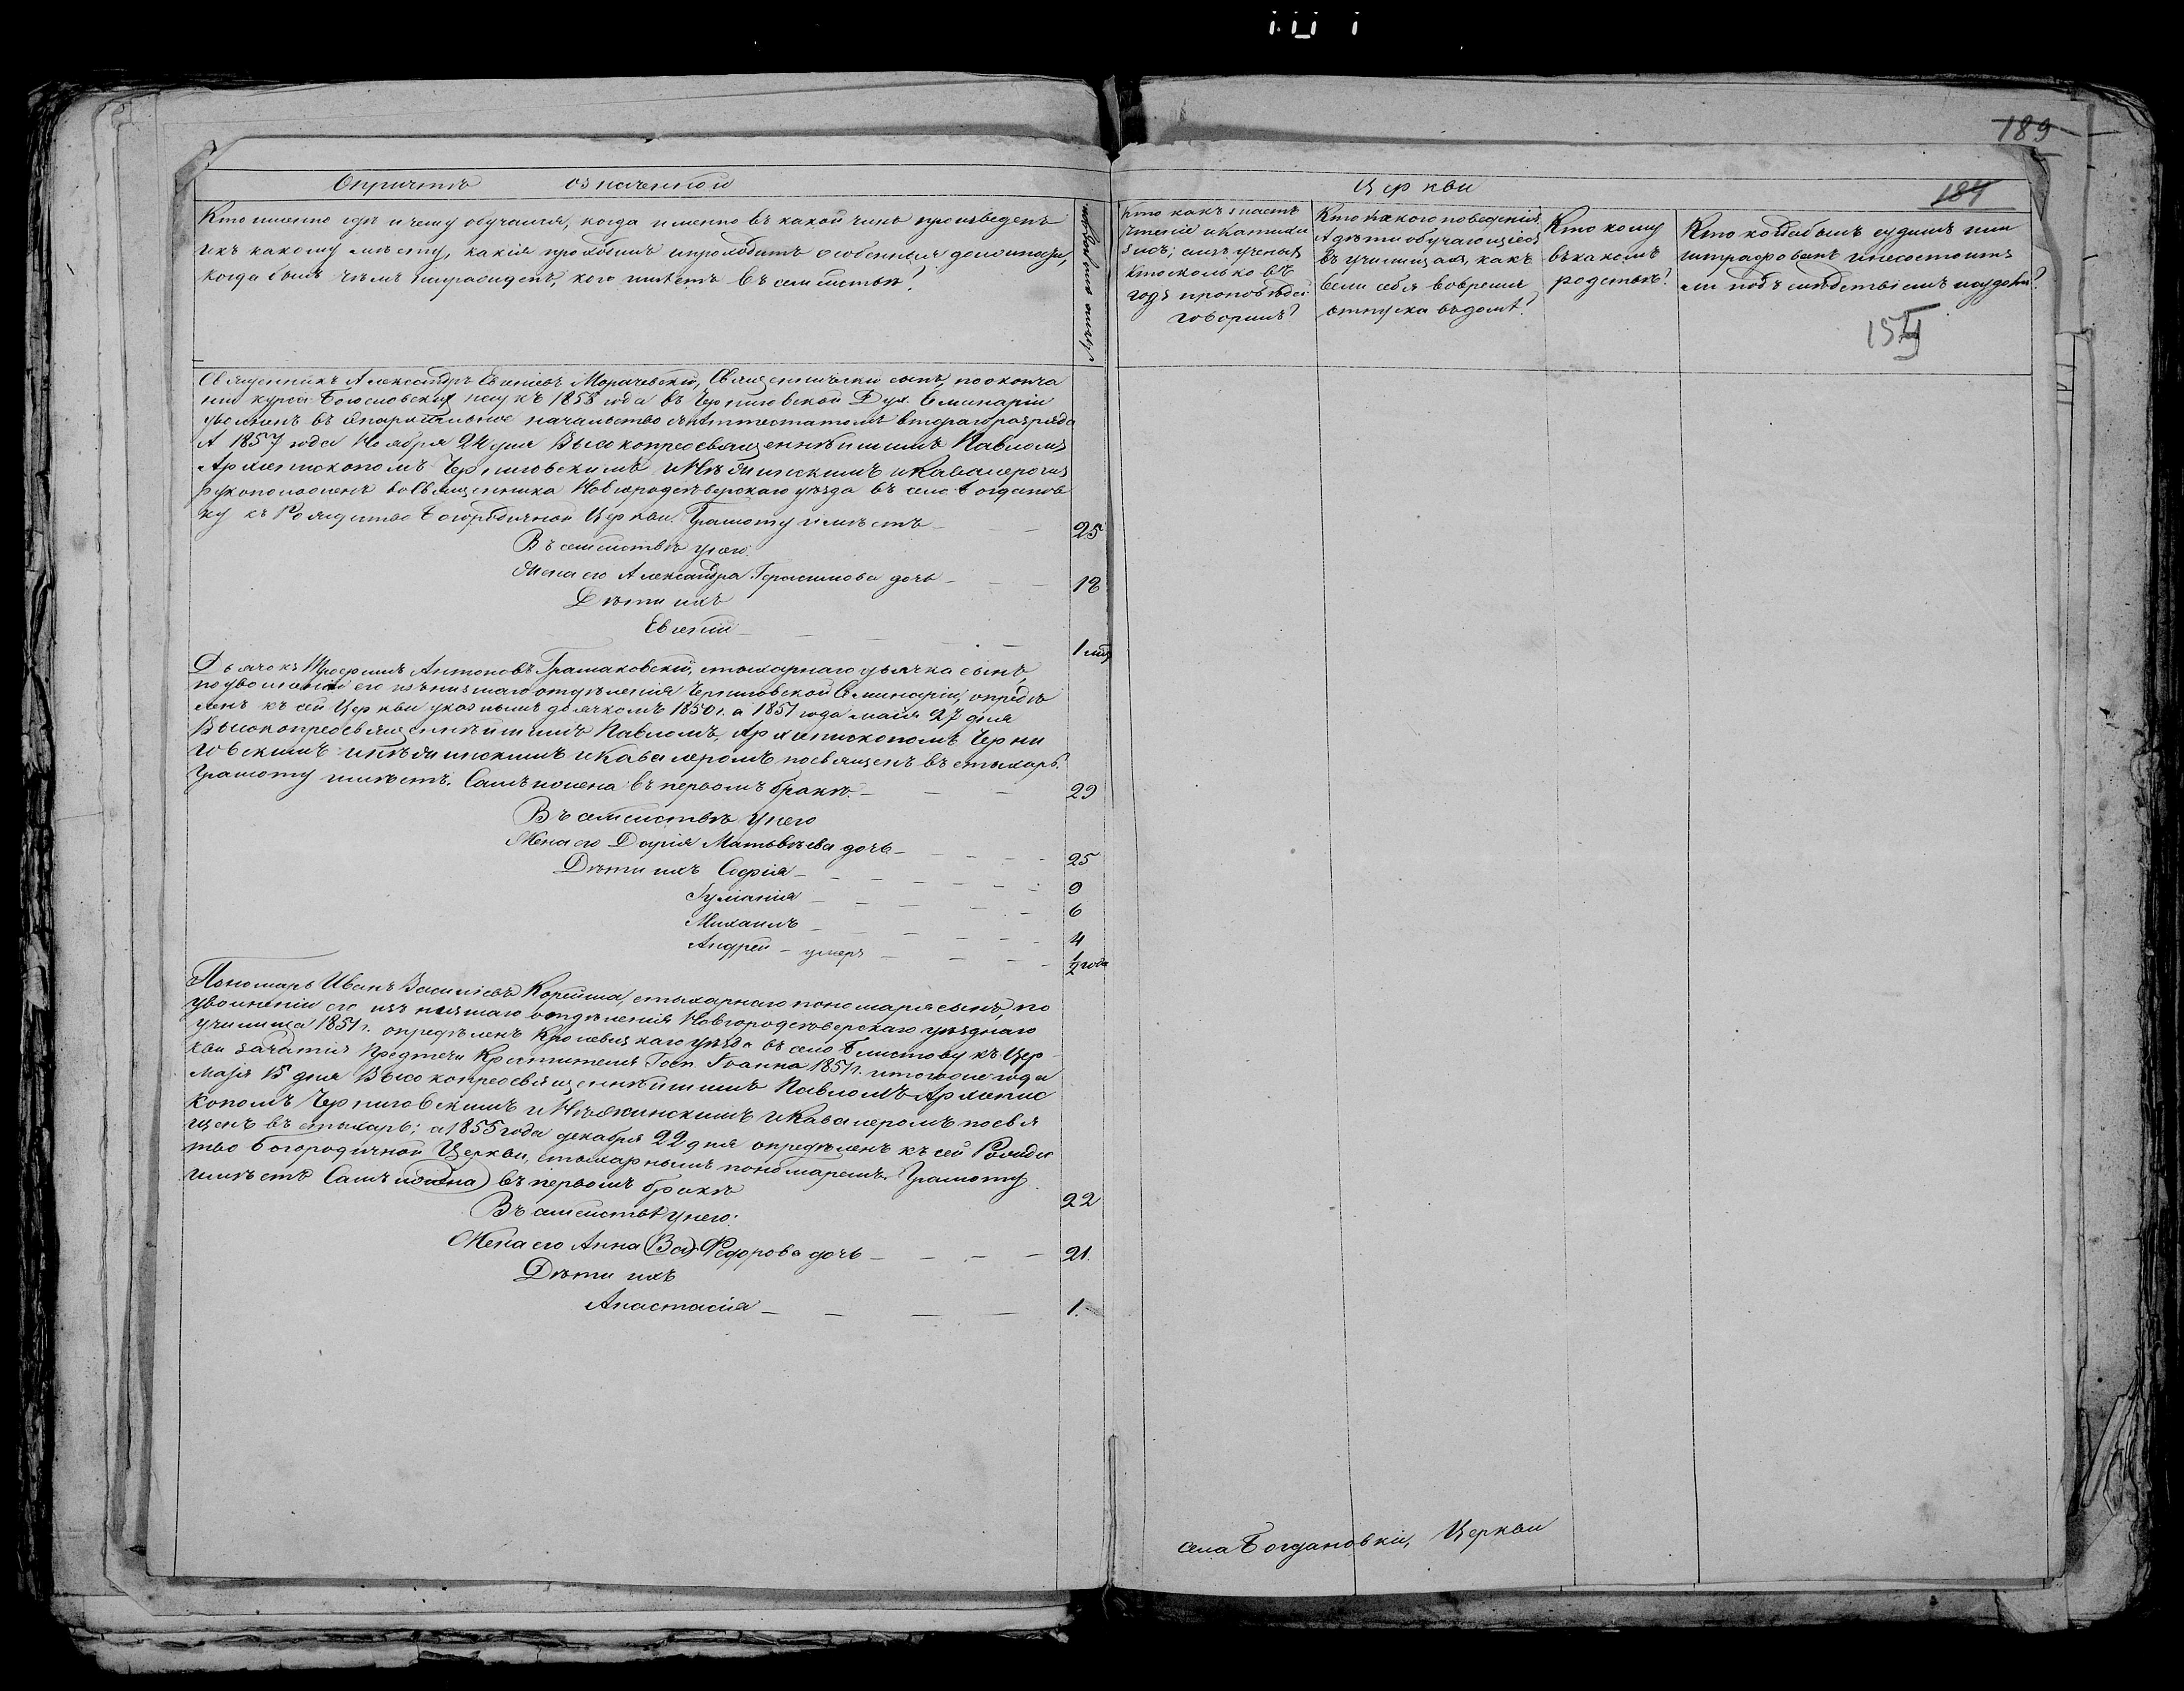 189
Опричтѣ означенной Церкви
184
Кто именно гдѣ и чему обучался, когда именно въ какой чинъ произведенъ
и къ какому мѣсту, какія проходилъ и проходитъ особенныя должности,
когда былъ чѣмъ награжденъ, кого имѣетъ въ семействѣ?
Кто какъ знаетъ
чтеніе и катихи
зисъ; изъ ученыхъ
кто сколько въ
годъ проповѣдей
говорилъ?
Кто какого поведенія
А дѣти обучающіеся
въ училищахъ, какъ
вели себя вовремя
отпуска въ домъ?
Кто кому
въ какомъ
родствѣ?
Кто когда былъ судимъ или
штрафованъ и не состоитъ
ли подъ слѣдствіемъ и судомъ?
Священникъ Александръ Евгеніевъ Морачевскій, Священническій сынъ, по оконча
ніи курса Богословскихъ наукъ 1855 года въ Черниговской Дух. Семинаріи
уволенъ въ Епархіальное начальство съ Аттестатомъ втораго разряда
А 1857 года Ноября 24 дня Высокопреосвященнѣйшимъ Павломъ
Архіепископомъ Черниговскимъ и Нѣжинскимъ и Кавалеромъ
рукоположенъ во Священника Новгородсѣверскаго уѣзда въ село Богданов
ку къ Рождество Богородичной Церкви. Грамоту имѣетъ 25
Въ семействѣ у него:
Жена его Александра Герасимова дочь 18
Дѣти ихъ
Евгеній 1 мѣс
Дьячокъ Антоновъ Грамаковскій, стыхарнаго дьячка сынъ,
по уволненіи его изъ низшаго отдѣленія Черниговской Семинаріи, опредѣ
ленъ къ сей Церкви указнымъ дьячкомъ 1850 г. а 1851 года мая 27 дня
Высокопреосвященнѣйшимъ Павломъ, Архіепископомъ Черни
говскимъ и Нѣжинскимъ и Кавалеромъ посвященъ въ стыхарь.
Грамоту имѣетъ. Самъ и жена въ первомъ бракѣ. 29
Въ семействѣ у него
Жена его Дарія Матвѣева дочь 25
Дѣти ихъ Софія 9
Іуліанія 6
Михаилъ 4
Андрей – умеръ 1/2 года
Пономарь Иванъ Василіевъ Корейша, стыхарнаго пономаря сынъ, по
уволненіи его изъ низшаго отдѣленія Новгородсѣверскаго уѣзднаго
училища 1851 г. опредѣленъ Кролевецкаго уѣзда въ село Блистову къ Цер
кви Зачатія Предтечи Крестителя Госп. Іоанна 1851 г. и того же года
Маія 15 дня Высокопреосвященнѣйшимъ Павломъ Архіепис
копомъ Черниговскимъ и Нѣжинскимъ и Кавалеромъ посвя
щенъ въ стыхарь; а 1855 года декабря 22 дня опредѣленъ къ сей Рождес
тво Богородичной Церкви, стыхарнымъ пономаремъ. Грамоту
имѣетъ Самъ и жена въ первомъ бракѣ 22
Въ семействѣ у него:
Жена его Анна (Ва) Федорова дочь 21.
Дѣти ихъ
Анастасія 1.
села Богдановки, Церкви